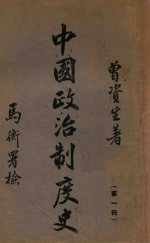 曾資生著
中國政治制度史
（第一冊）
馬衡署檢